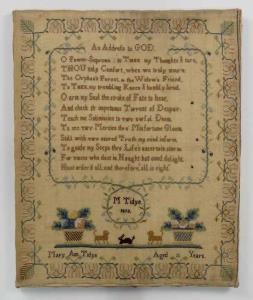 An Address to GOD.
O Power Supreme! to Thee my Thoughts I turn,
THOU only Comfort, when we truly mourn
The Orphan's Parent, & the Widow's Friend,
To Thee, my trembling Knees I humbly bend.
O arm my Soul the stroke of Fate to bear,
And check th' impetuous Torrent of Despair.
Teach me Submission to my awful Doom,
To see thy Mercies thro' Misfortunes Gloom.
Still with new sacred Truth my mind inform,
To guide my Steps thro' Life's uncertain storm
For surely who dost in Nought but good delight,
Hast order'd all, and therefore all is right.
M Tidye
Mary Ann Tidye Aged 11 Years.